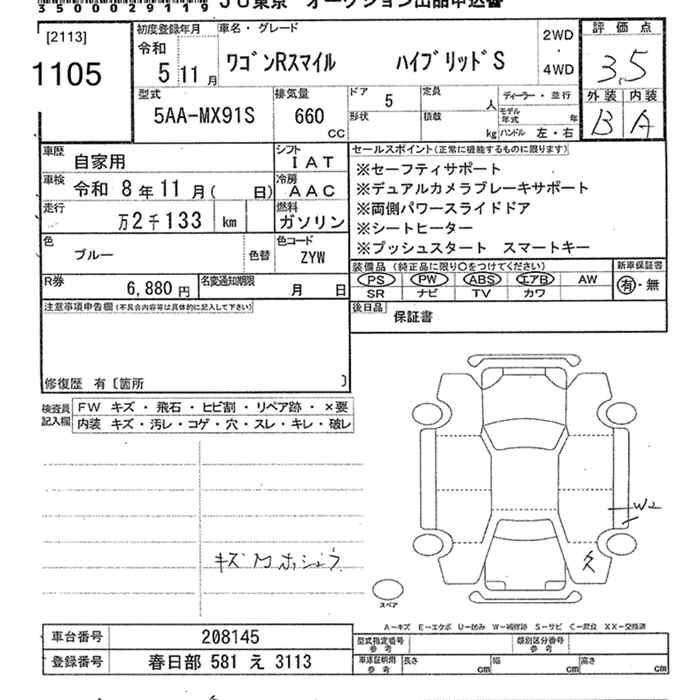 35000029119 JU東京 オークション出品申込書
[2113]
1105
初度登録年月
令和
5年11月
車名・グレード
ワゴンRスマイル ハイブリッドS
2WD
・
4WD
評価点
3.5
外装 内装
B A
型式
5AA-MX91S
排気量
660
CC
ドア
5
形状
定員
人
積載
kg
ディーラー・並行
モデル年式 年
ハンドル 左・右
車歴
自家用
シフト
IAT
車検
令和 8年11月( 日)
冷房
AAC
走行
万2千133 km
燃料
ガソリン
色
ブルー
色替
色コード
ZYW
R券
6,880円
名変通知期限
月 日
セールスポイント(正常に機能するものに限ります)
※セーフティサポート
※デュアルカメラブレーキサポート
※両側パワースライドドア
※シートヒーター
※プッシュスタート スマートキー
装備品(純正品に限り○をつけてください)
PS PW ABS エアB AW
SR ナビ TV カワ
新車保証書
有・無
後日品
保証書
注意事項申告欄(不具合内容等は具体的に記入して下さい)
修復歴 有〔箇所 〕
検査員記入欄
FW キズ・飛石・ヒビ割・リペア跡・×要
内装 キズ・汚レ・コゲ・穴・スレ・キレ・破レ
W2
スペア
A-キズ E-エクボ U-凹み W-補修跡 S-サビ C-腐食 XX-交換済
車台番号
208145
登録番号
春日部 581 え 3113
型式指定番号
参考
類別区分番号
参考
車庫証明用
参考
長さ cm
幅 cm
高さ cm